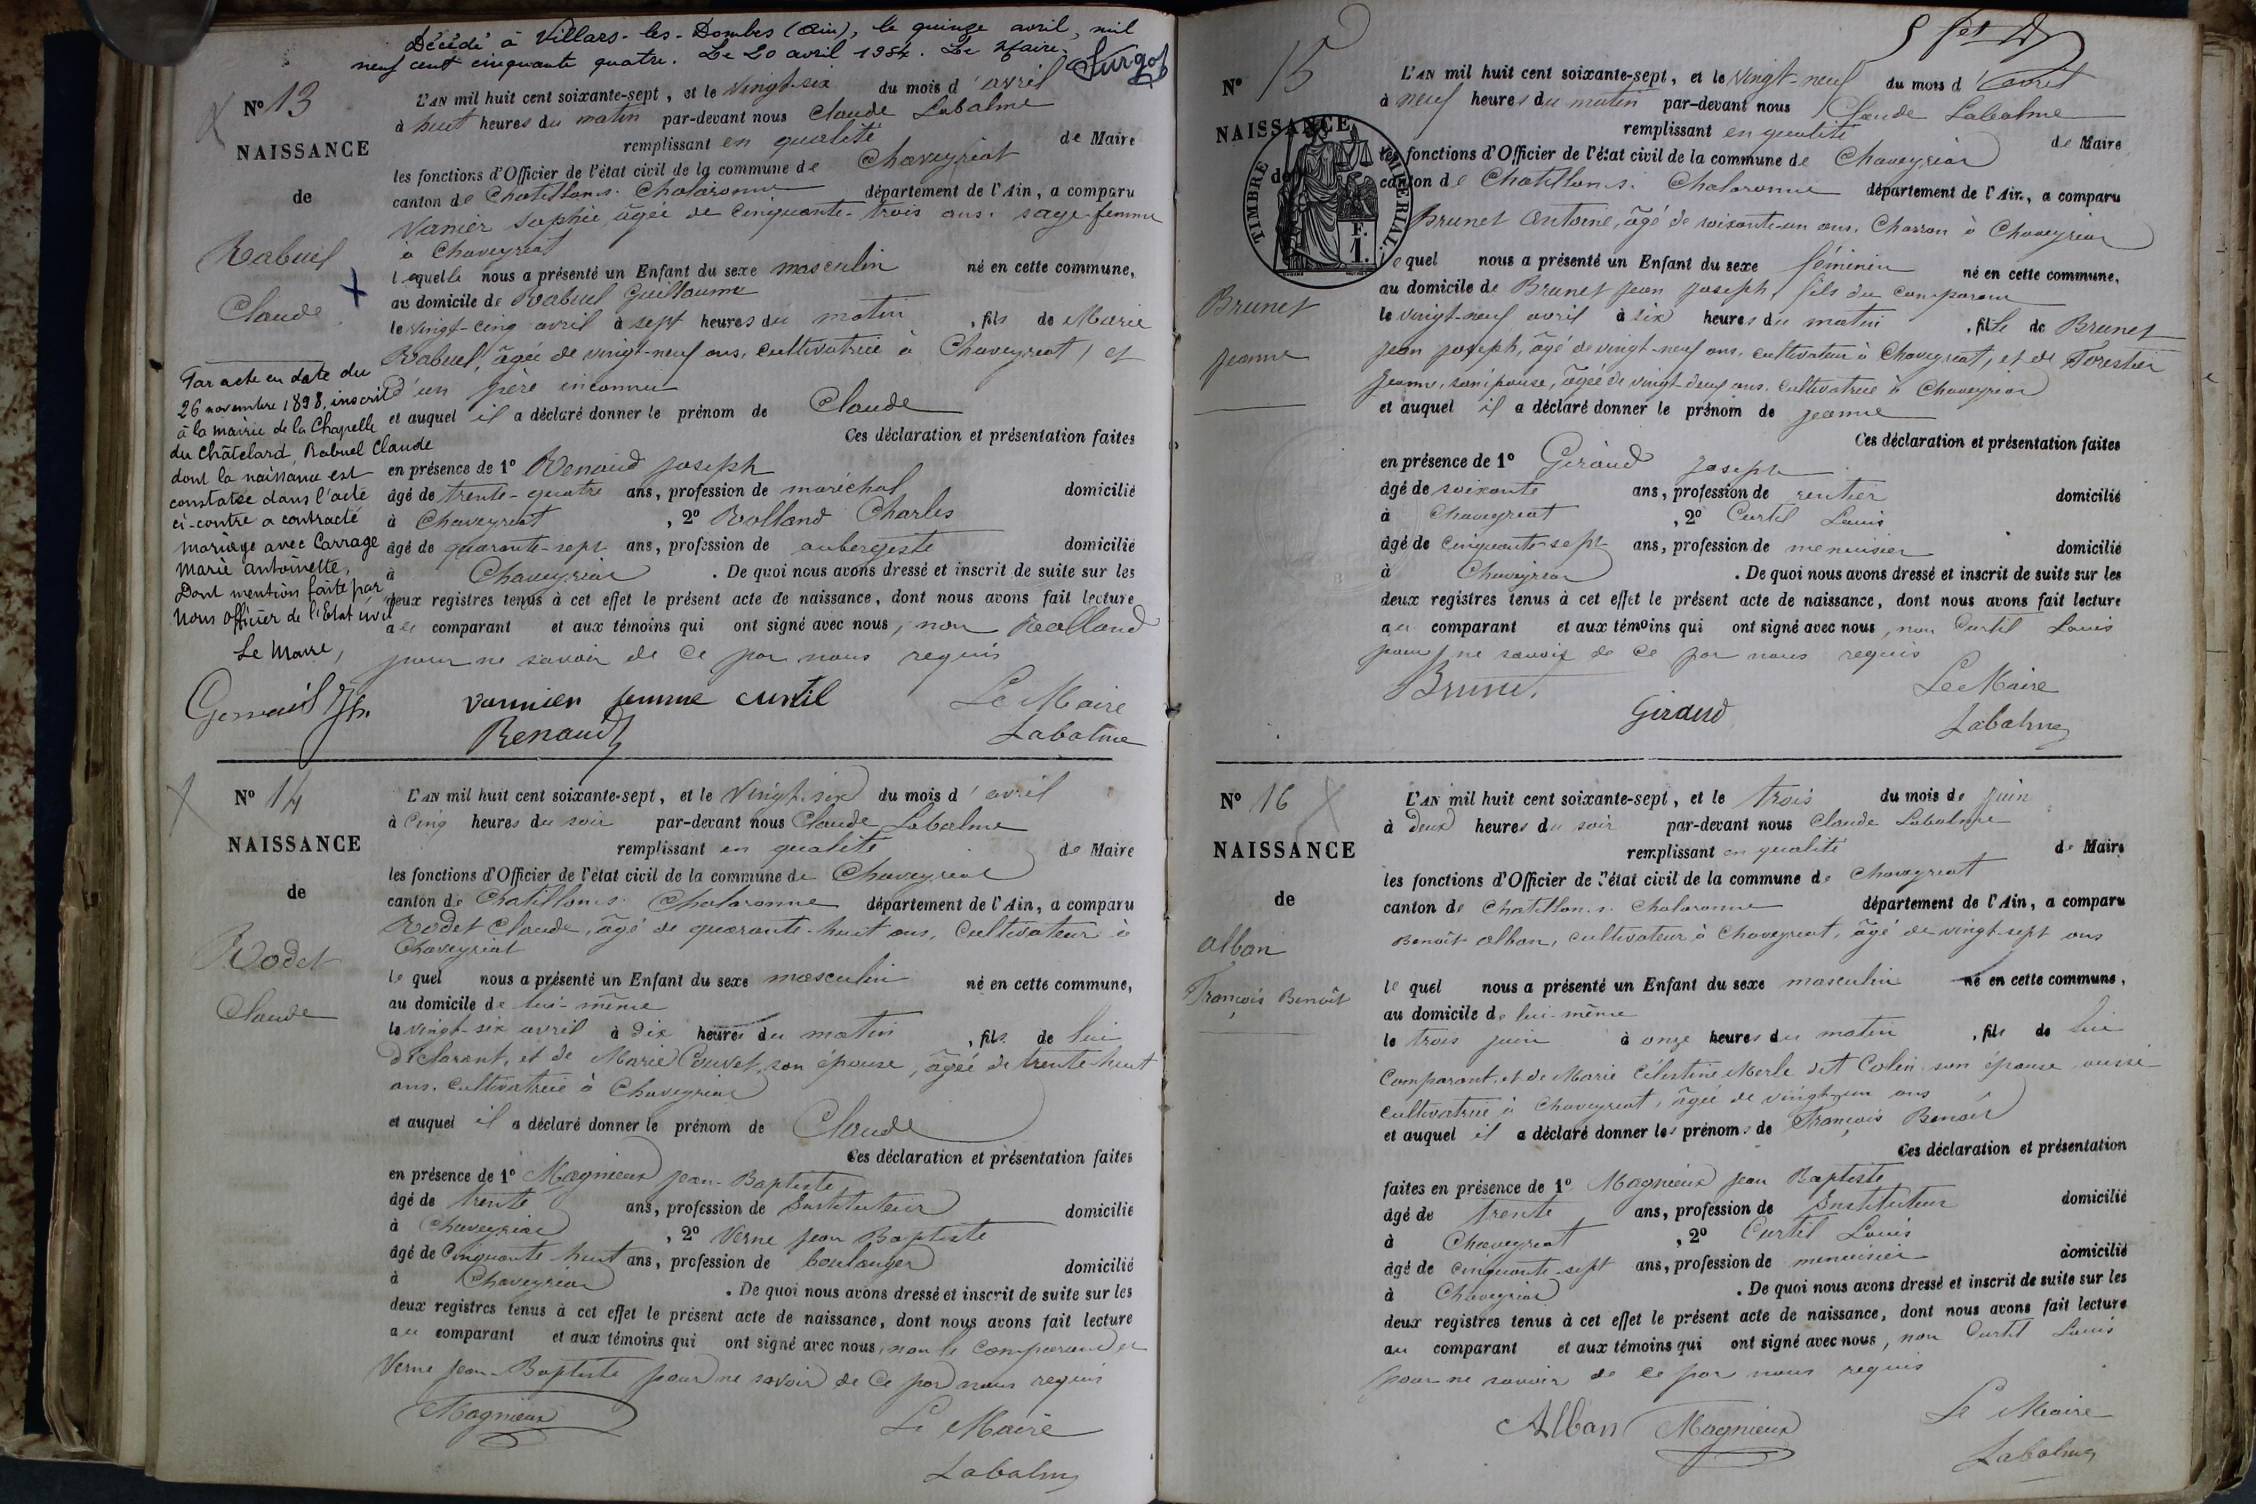 Décédé à Villars-les-Dombes (Ain), le quinze avril, mil
neuf cent cinquante quatre. Le 20 avril 1954. Le Maire.
N° 13
NAISSANCE
de
Rabuel
Claude
Par acte en date du
26 novembre 1898, inscrit
à la mairie de la Chapelle
du Châtelard, Rabuel Claude
dont la naissance est
constatée dans l'acte
ci-contre a contracté
mariage avec Carrage
Marie Antoinette,
Dont mention faite par
Nous officier de l'Etat civil
Le Maire,
L'AN mil huit cent soixante-sept, et le vingt-six du mois d'avril
à huit heures du matin par-devant nous Claude Labalme
remplissant en qualité de Maire
les fonctions d'Officier de l'état civil de la commune de Chaveyriat
canton de Chatillon s. Chalaronne département de l'Ain, a comparu
Vanier Sophie, âgée de cinquante-trois ans, sage-femme
à Chaveyriat
lequelle nous a présenté un Enfant du sexe masculin né en cette commune,
au domicile de Rabuel Guillaume
le vingt-cinq avril à sept heures du matin, fils de Marie
Rabuel, âgée de vingt-neuf ans, cultivatrice à Chaveyriat, et
d'un père inconnu
et auquel il a déclaré donner le prénom de Claude
Ces déclaration et présentation faites
en présence de 1° Renaud Joseph
âgé de trente-quatre ans, profession de maréchal domicilié
à Chaveyriat, 2° Rolland Charles
âgé de quarante-sept ans, profession de aubergiste domicilié
à Chaveyriat. De quoi nous avons dressé et inscrit de suite sur les
deux registres tenus à cet effet le présent acte de naissance, dont nous avons fait lecture
au comparant et aux témoins qui ont signé avec nous, non Rolland
pour ne savoir de ce par nous requis
vannier femme curtil Le Maire
Renaud Labalme
N° 14
NAISSANCE
de
Rodet
Claude
L'AN mil huit cent soixante-sept, et le vingt-six du mois d'avril
à cinq heures du soir par-devant nous Claude Labalme
remplissant en qualité de Maire
les fonctions d'Officier de l'état civil de la commune de Chaveyriat
canton de Chatillon s. Chalaronne département de l'Ain, a comparu
Rodet Claude, âgé de quarante-huit ans, cultivateur à
Chaveyriat
lequel nous a présenté un Enfant du sexe masculin né en cette commune,
au domicile de lui-même
le vingt-six avril à dix heures du matin, fils de lui
déclarant, et de Marie Couvet, son épouse, âgée de trente-huit
ans, cultivatrice à Chaveyriat
et auquel il a déclaré donner le prénom de Claude
Ces déclaration et présentation faites
en présence de 1° Magnieux Jean-Baptiste
âgé de trente ans, profession de Instituteur domicilié
à Chaveyriat, 2° Verne Jean Baptiste
âgé de cinquante huit ans, profession de boulanger domicilié
à Chaveyriat. De quoi nous avons dressé et inscrit de suite sur les
deux registres tenus à cet effet le présent acte de naissance, dont nous avons fait lecture
au comparant et aux témoins qui ont signé avec nous, non le comparant et
Verne Jean-Baptiste pour ne savoir de ce par nous requis
Magnieux Le Maire
Labalme
N° 15
NAISSANCE
de
TIMBRE IMPERIAL
1 F.
Brunet
Jeanne
L'AN mil huit cent soixante-sept, et le vingt-neuf du mois d'avril
à neuf heures du matin par-devant nous Claude Labalme
remplissant en qualité de Maire
les fonctions d'Officier de l'état civil de la commune de Chaveyriat
canton de Chatillon s. Chalaronne département de l'Ain, a comparu
Brunet Antoine, âgé de soixante-un ans, Charron à Chaveyriat
lequel nous a présenté un Enfant du sexe féminin né en cette commune,
au domicile de Brunet Jean Joseph, fils du comparant
le vingt-neuf avril à six heures du matin, fille de Brunet
Jean Joseph, âgé de vingt-neuf ans, cultivateur à Chaveyriat, et de Forestier
Jeanne, son épouse, âgée de vingt-deux ans, cultivatrice à Chaveyriat
et auquel il a déclaré donner le prénom de Jeanne
Ces déclaration et présentation faites
en présence de 1° Giraud Joseph
âgé de soixante ans, profession de rentier domicilié
à Chaveyriat, 2° Curtil Louis
âgé de cinquante-sept ans, profession de menuisier domicilié
à Chaveyriat. De quoi nous avons dressé et inscrit de suite sur les
deux registres tenus à cet effet le présent acte de naissance, dont nous avons fait lecture
au comparant et aux témoins qui ont signé avec nous, non Curtil Louis
pour ne savoir de ce par nous requis
Brunet. Le Maire
Giraud Labalme
N° 16
NAISSANCE
de
Alban
François Benoît
L'AN mil huit cent soixante-sept, et le trois du mois de juin
à deux heures du soir par-devant nous Claude Labalme
remplissant en qualité de Maire
les fonctions d'Officier de l'état civil de la commune de Chaveyriat
canton de Chatillon s. Chalaronne département de l'Ain, a comparu
Benoît Alban, cultivateur à Chaveyriat, âgé de vingt-sept ans
lequel nous a présenté un Enfant du sexe masculin né en cette commune,
au domicile de lui-même
le trois juin à onze heures du matin, fils de lui
comparant, et de Marie Célestine Merle dit Colin son épouse, aussi
cultivatrice à Chaveyriat, âgée de vingt-un ans
et auquel il a déclaré donner les prénoms de François Benoît
Ces déclaration et présentation
faites en présence de 1° Magnieux Jean Baptiste
âgé de trente ans, profession de Instituteur domicilié
à Chaveyriat, 2° Curtil Louis
âgé de cinquante-sept ans, profession de menuisier domicilié
à Chaveyriat. De quoi nous avons dressé et inscrit de suite sur les
deux registres tenus à cet effet le présent acte de naissance, dont nous avons fait lecture
au comparant et aux témoins qui ont signé avec nous, non Curtil Louis
pour ne savoir de ce par nous requis
Alban Magnieux Le Maire
Labalme